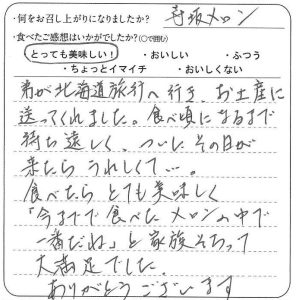 ・何をお召し上がりになりましたか? 寺坂メロン
・食べたご感想はいかがでしたか?(○で囲む)
・とっても美味しい! ・おいしい ・ふつう
・ちょっとイマイチ ・おいしくない
君が北海道旅行へ行き、お土産に
送ってくれました。食べ頃になるまで
待ち遠しく、ついにその日が
来たら うれしくて…。
食べたら とても美味しく
「今までで食べた メロンの中で
一番だね」と家族そろって
大満足でした。
ありがとうございます